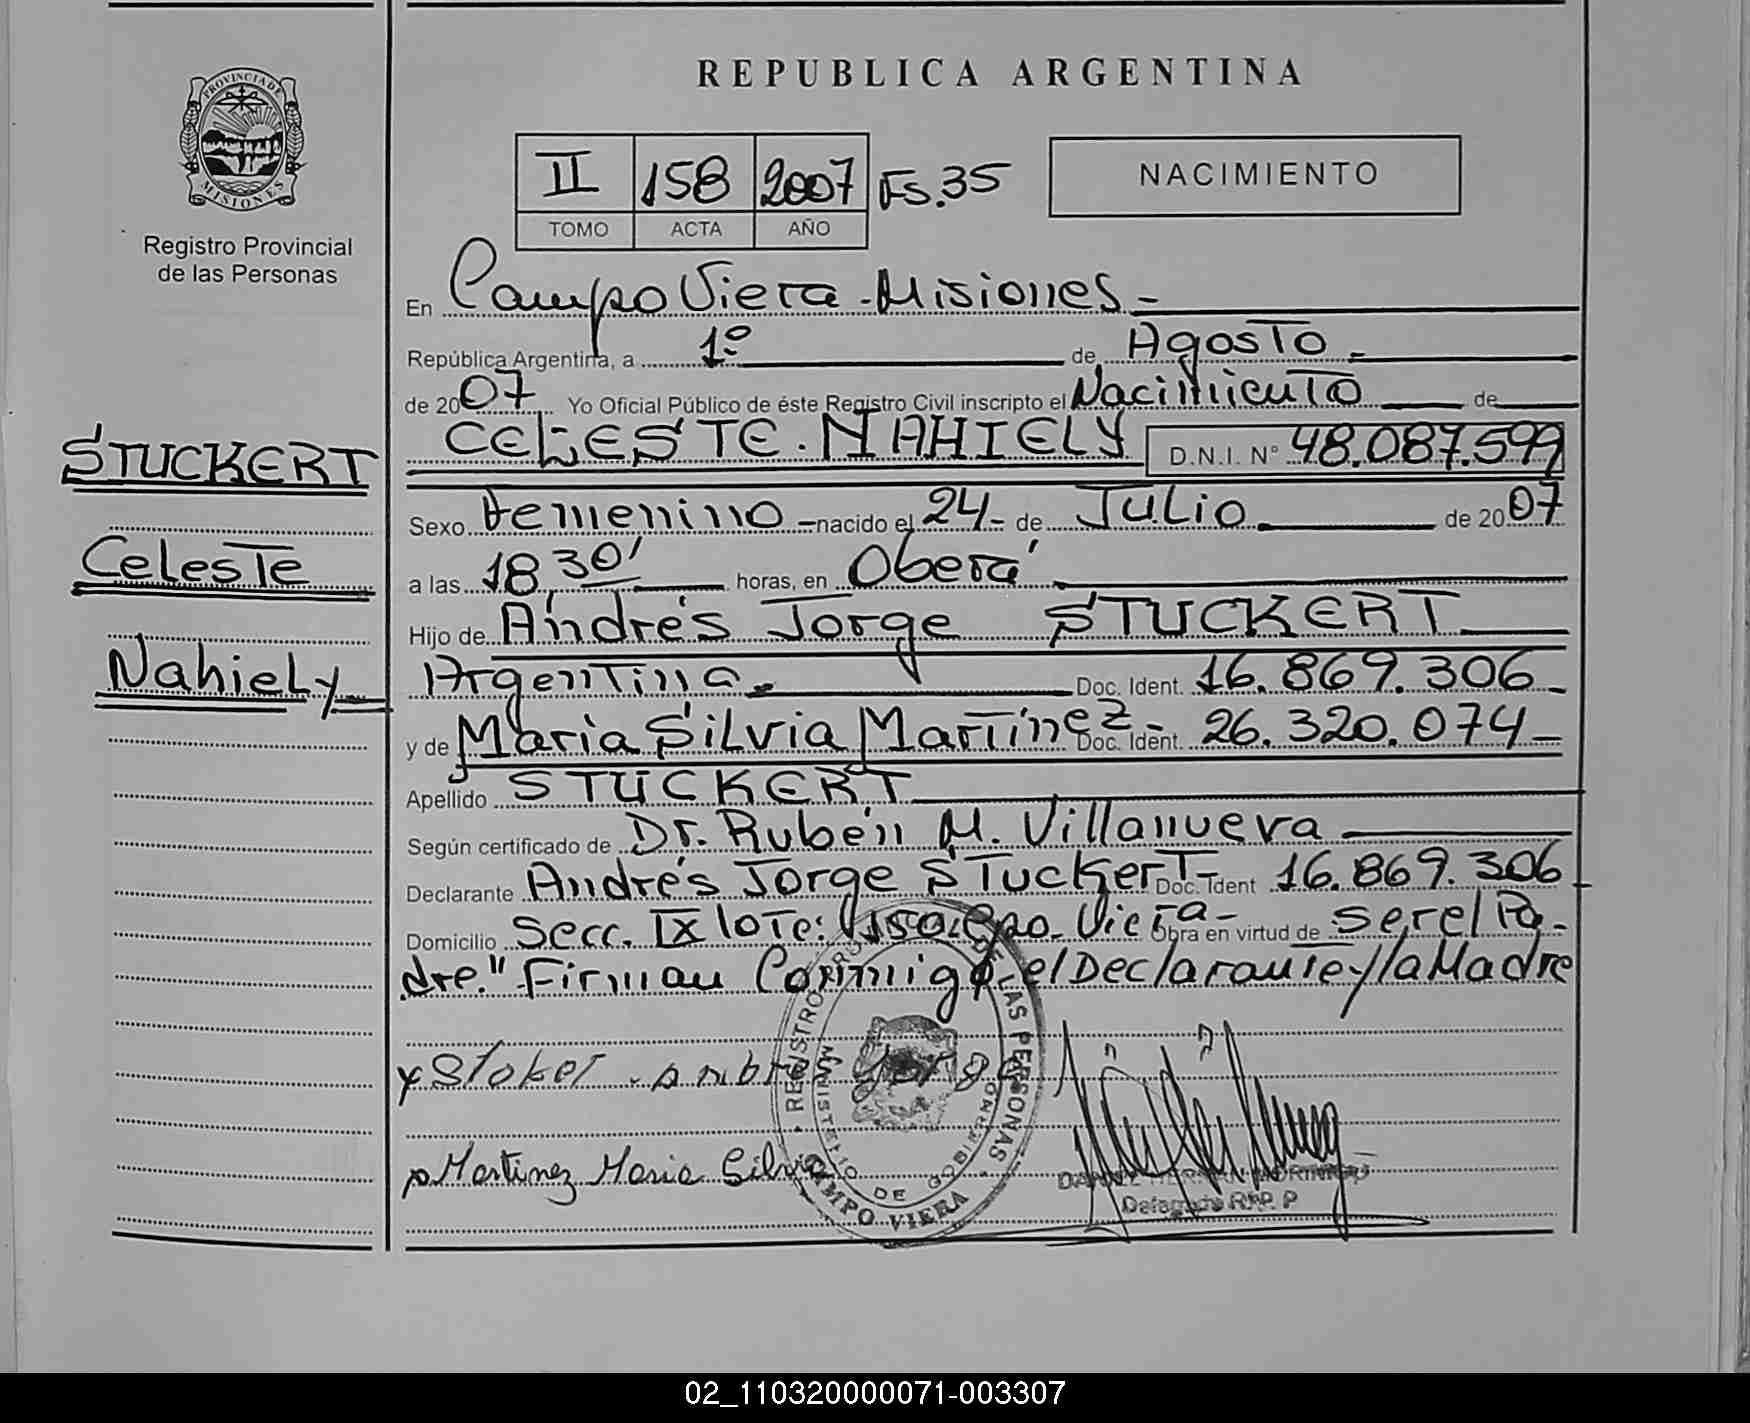 PROVINCIA DE
MISIONES
Registro Provincial
de las Personas
STUCKERT
Celeste
Nahiely
REPUBLICA ARGENTINA
II 158 2007 Fs. 35
TOMO ACTA AÑO
NACIMIENTO
En Campo Viera - Misiones -
República Argentina, a 1º de Agosto -
de 2007 Yo Oficial Público de éste Registro Civil inscripto el Nacimiento de
CELESTE NAHIELY D.N.I. Nº 48.087.599
Sexo Femenino - nacido el 24 - de Julio de 2007
a las 18,30' horas, en Oberá
Hijo de Andrés Jorge STUCKERT
Argentina - Doc. Ident. 16.869.306 -
y de María Silvia Martínez - Doc. Ident. 26.320.074 -
Apellido STUCKERT
Según certificado de Dr. Rubén M. Villanueva
Declarante Andrés Jorge Stuckert - Doc. Ident 16.869.306
Domicilio Secc. IX lote: Cpo. Viera - Obra en virtud de ser el Pa-
dre." Firman Conmigo el Declarante y la Madre
Martinez Maria Silvia
REGISTRO DE LAS PERSONAS
MINISTERIO DE GOBIERNO
CAMPO VIERA
Delegado R.P.P
02_110320000071-003307